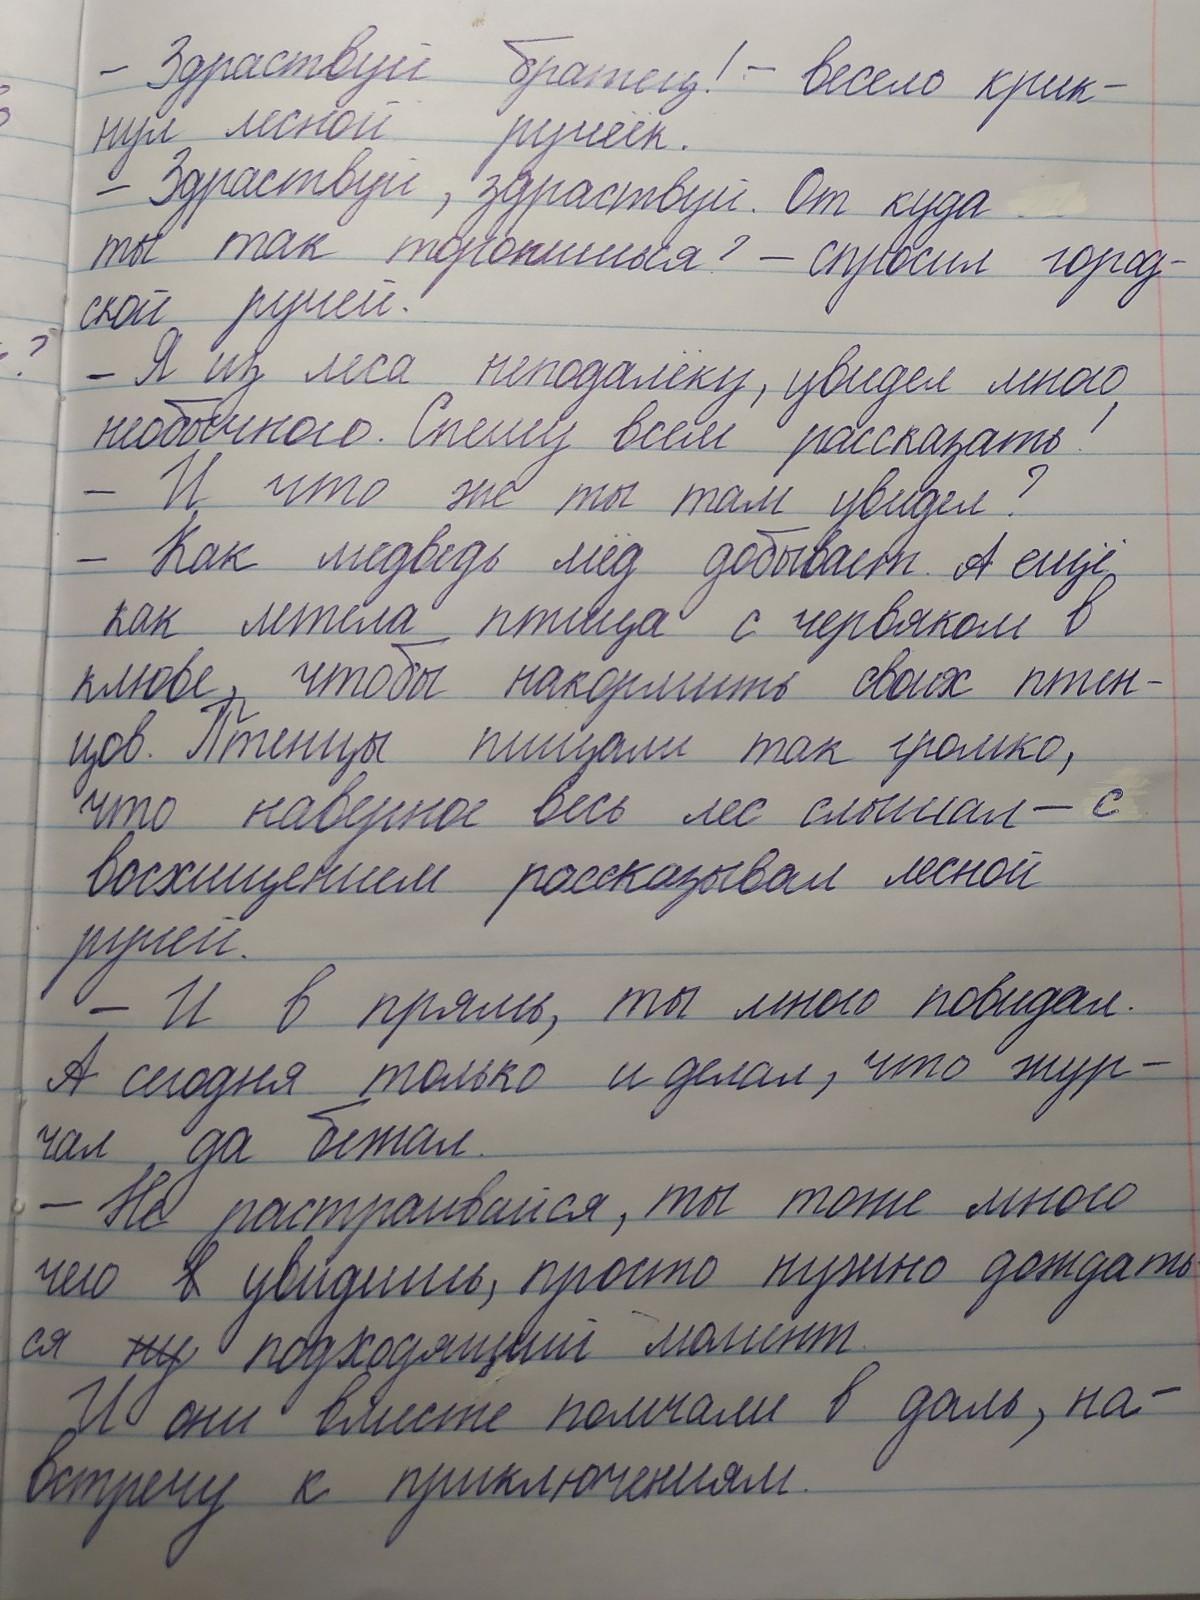 – Здраствуй братец! – весело крик-
нул лесной ручеёк.
– Здраствуй, здраствуй. От куда
ты так торопишься? – спросил город-
ской ручей.
– Я из леса неподалёку, увидел много
необычного. Спешу всем рассказать!
– И что же ты там увидел?
– Как медведь мёд добывает. А ещё
как летела птица с червяком в
клюве, чтобы накормить своих птен-
цов. Птенцы пищали так громко,
что наверное весь лес слышал – с
восхищением рассказывал лесной
ручей.
– И в прямь, ты много повидал.
А сегодня только и делал, что жур-
чал да бежал.
– Не растраивайся, ты тоже много
чего увидишь, просто нужно дождать-
ся ну подходящий момент.
И они вместе помчали в даль, на-
встречу к приключениям.